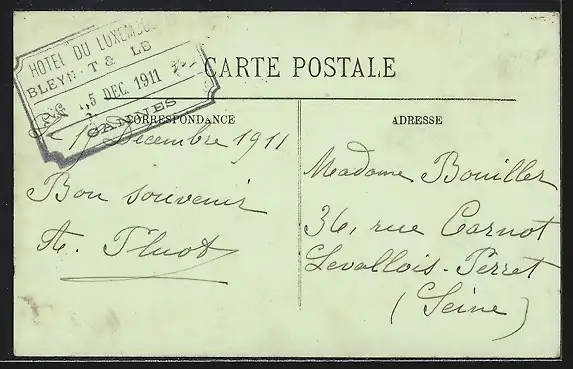 HOTEL DU LUXEMBOU
BLEYN T & LE
5 DEC. 1911
CANNES
CARTE POSTALE
CORRESPONDANCE
ADRESSE
Décembre 1911
Bon souvenir
A.
Madame Bouiller
36, rue Carnot
Levallois-Perret
(Seine)